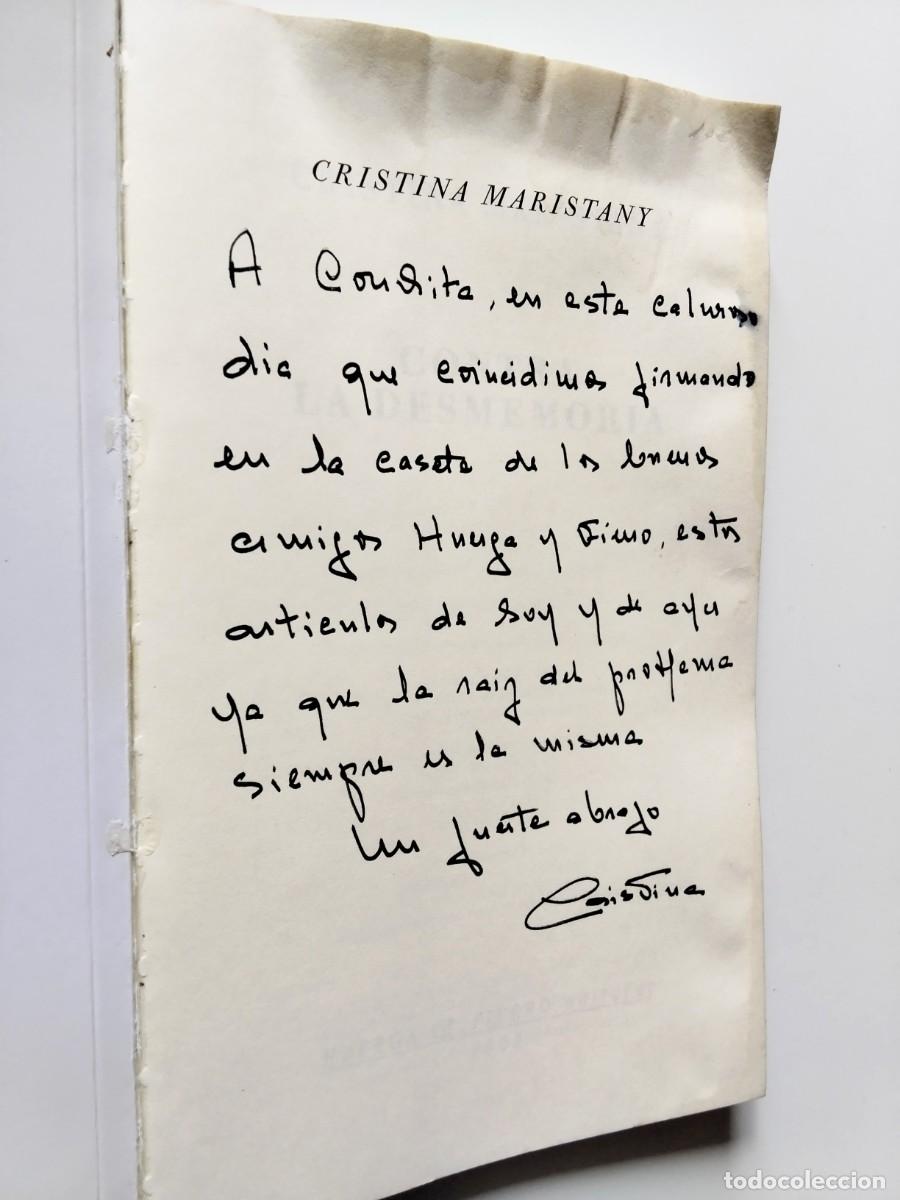 CRISTINA MARISTANY
A Conchita, en este caluroso
día que coincidimos firmando
en la caseta de los buenos
amigos Huerga y Fierro, estos
artículos de hoy y de ayer
ya que la raiz del problema
siempre es la misma
Un fuerte abrazo
Cristina
LA DESMEMORIA
todocoleccion